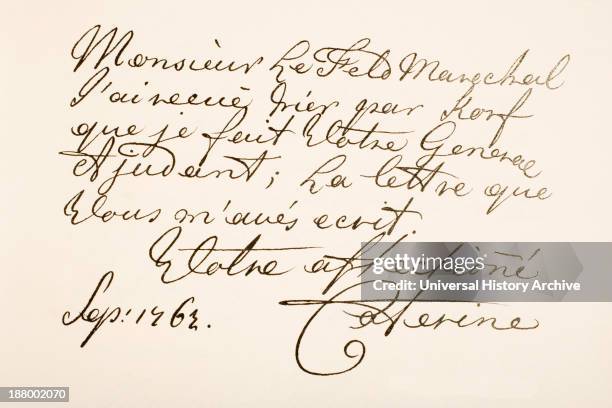 Monsieur Le Feld Marechal
J'ai recue hier par Korf
que je fait Votre General
Ajudant; La lettre que
Vous m'avés ecrit.
Votre affectioñé
Sep: 1762. Caterine
gettyimages®
Universal History Archive
188002070